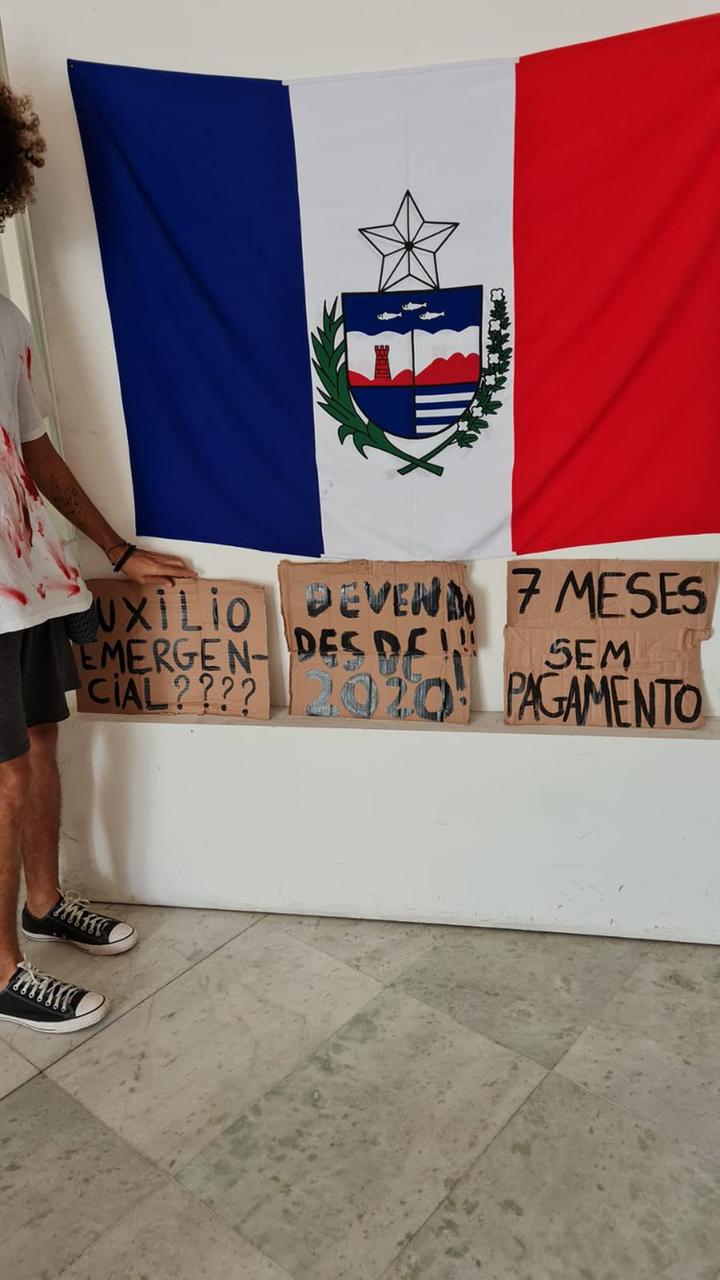 UXiLiO
EMERGEN-
CiAL????
DEVENDO
DESDE!!!
2020!
7 MESES
SEM
PAGAMENTO